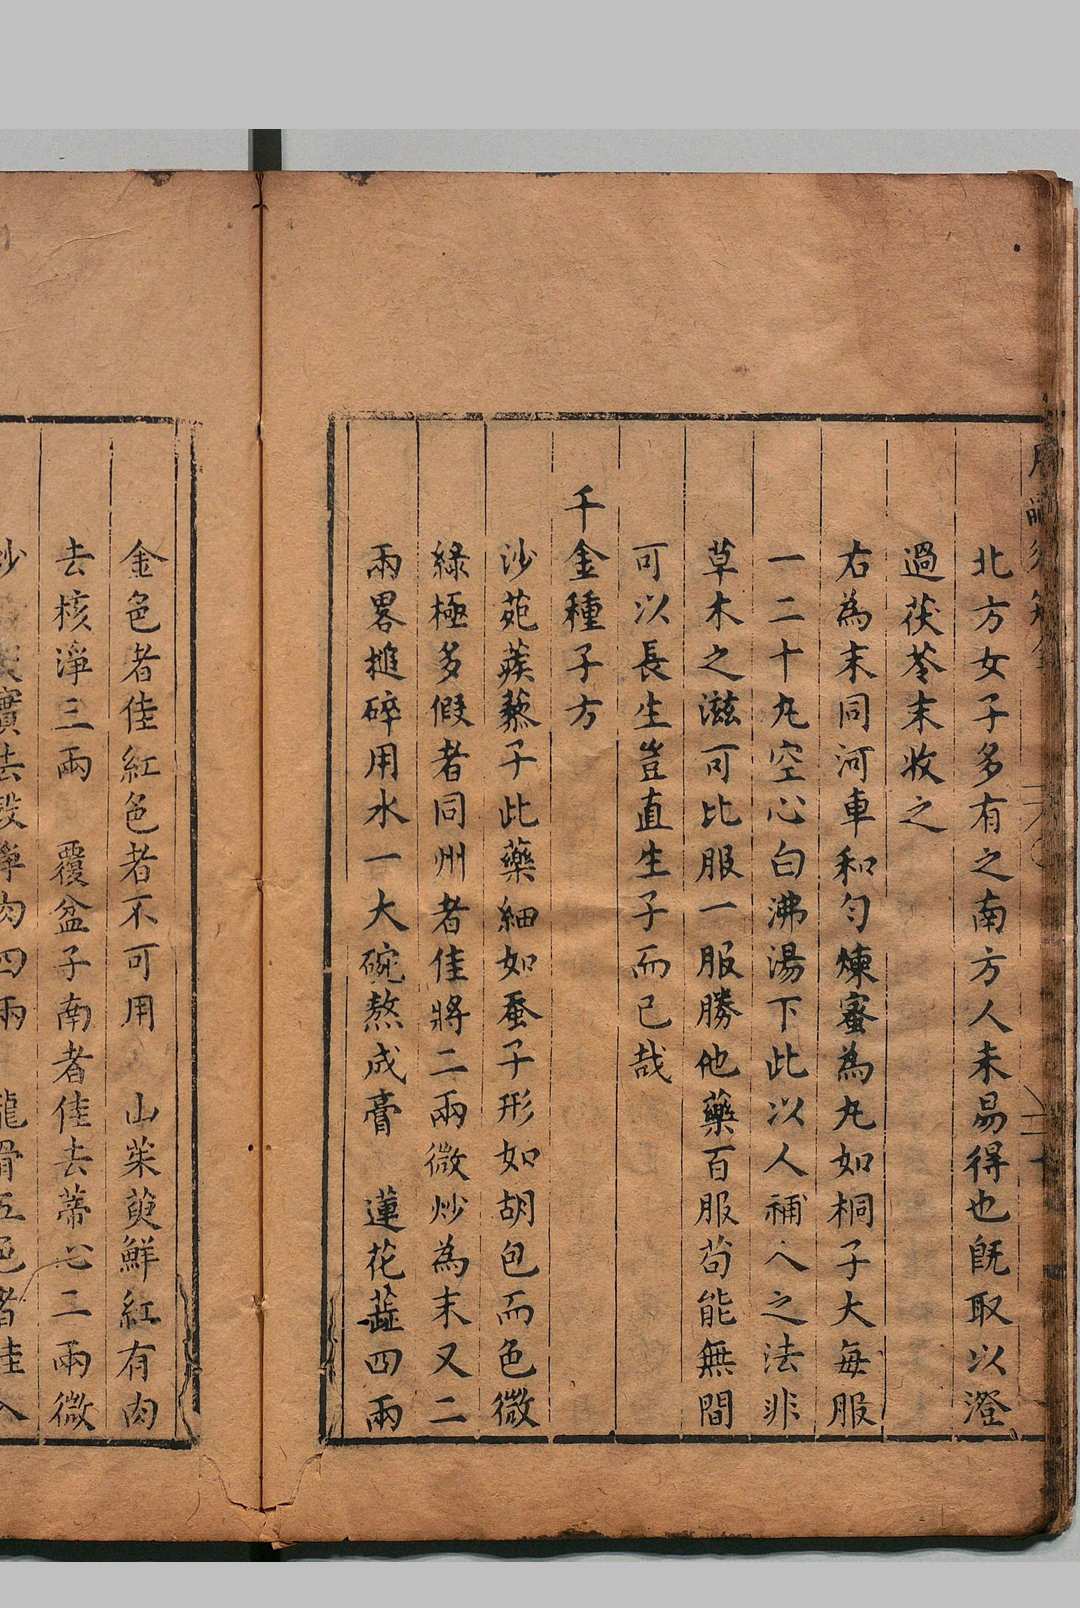 北方女子多有之南方人未易得也旣取以澄
過茯苓末收之
右為末同河車和勻煉蜜為丸如桐子大每服
一二十丸空心白沸湯下此以人補人之法非
草木之滋可比服一服勝他藥百服苟能無間
可以長生豈直生子而已哉
千金種子方
沙苑蒺藜子此藥細如蚕子形如胡包而色微
綠極多假者同州者佳將二兩微炒為末又二
兩畧搥碎用水一大碗熬成膏 蓮花蕋四兩
金色者佳紅色者不可用 山茱萸鮮紅有肉
去核淨三兩 覆盆子南者佳去蒂心二兩微
炒 實去殼淨肉四兩 龍骨五色者佳入